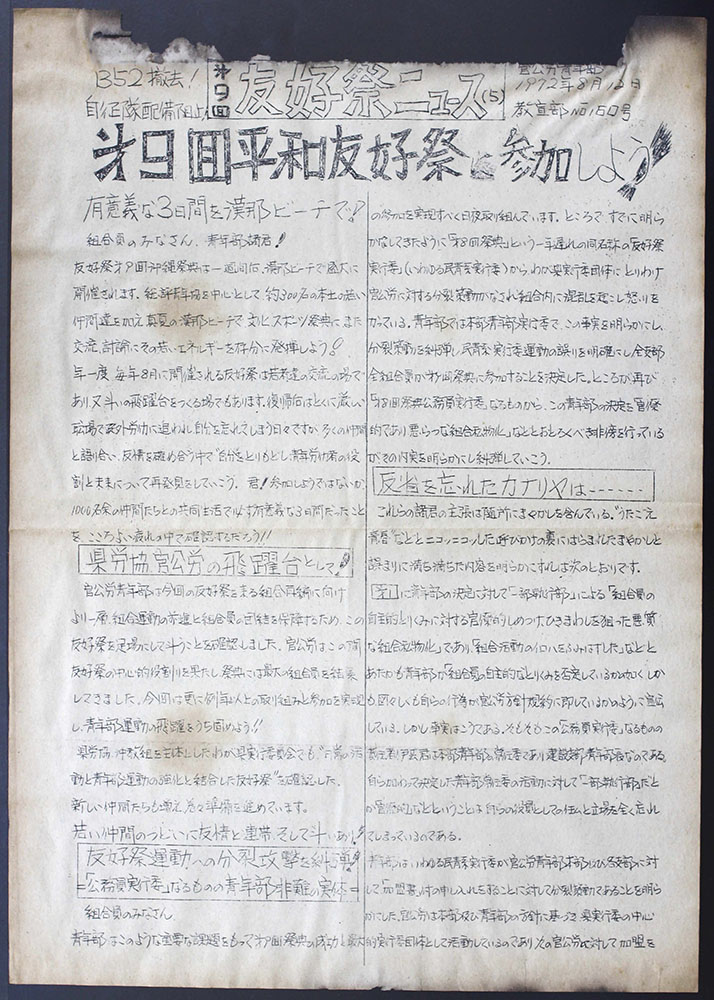 B52撤去!
自衛隊配備阻止!
第9回
友好祭ニュース(5)
官公労青年部
1972年8月12日
教宣部 No.150号
第9回平和友好祭に参加しよう!!
有意義な3日間を漢那ビーチで!!
組合員のみなさん、青年部諸君!
友好祭第9回沖縄祭典は一週間后、漢那ビーチで盛大に
開催されます。総評青年協を中心として、約300名の本土の若い
仲間達を加え真夏の漢那ビーチで文化スポーツ祭典にまた
交流、討論にその若いエネルギーを存分に発揮しよう!!
年一度毎年8月に開催される友好祭は若者達の交流の場で
あり又斗いの飛躍台をつくる場でもあります。復帰后はとくに厳しい
職場で 労働に追われ自分を忘れてしまう日々ですが、多くの仲間
と語り合い、友情を暖め合う中で"自分をとりもどし青年労働者の役
割と未来について再発見をしていこう。君!参加しようではないか。
1000名余の仲間たちとの共同生活で必ず有意義な3日間だったこと
を、こころよい疲れの中で確認するだろう!!
県労協、官公労の飛躍台として!!
官公労青年部は今回の友好祭を来る組合再編に向け
より一層、組合運動の前進と組合員の団結を保障するため、この
友好祭を足場にして斗うことを確認しました。官公労はこの間
友好祭の中心的役割りを果たし、祭典には最大の組合員を結集
してきました。今回は更に例年以上の取り組みと参加を実現
し、青年部運動の飛躍をうち固めよう!!
県労協、沖教組を主体としたわが県実行委員会でも、 の活
動と青年部運動の強化と結合した友好祭"を確認した。
新しい仲間たちも増え着々準備を進めています。
若い仲間のつどいに友情と連帯、そして斗いあり!
友好祭運動への分裂攻撃を糾弾!
=「公務員実行委」なるものの青年部非難の実体=
組合員のみなさん
青年部はこのような重要な課題をもって第9回祭典の成功と最大
の参加を実現すべく日夜取り組んでいます。ところで、すでに明ら
かなしてきたように「第8回祭典」という一年遅れの同名称の「友好祭
実行委」(いわゆる民青系実行委)から、わが県実行委団体にとりわけ
官公労に対する分裂策動がなされ組合内に混乱を起こし怒りを
かっている。青年部では本部青年部実行委で、この事実を明らかにし、
分裂策動を糾弾し民青系実行委運動の誤りを明確にし全支部
全組合員が第9回祭典に参加することを決定した。ところが再び
「第8回祭典公務員実行委」なるものから、この青年部の決定を"官僚
的であり悪らつな組合私物化"などとおどろくべき非傍を行っている
がその内実を明らかにし糾弾していこう。
反省を忘れたカナリヤは------
これらの諸君の主張は随所にまやかしを含んでいる。"うたごえ
青春"などとニコッニコッした呼びかけの裏にはらまれたまやかしと
誤まりに満ち満ちた内容を明らかにすれば次のとおりです。
に青年部の決定に対して「一部執行部」による「組合員の
自主的とりくみに対する官僚的しめつけ、ひきまわしを狙った悪質
な組合私物化」であり、「組合活動のイロハをふみはずした」などと
あたかも青年部が「組合員の自主的なとりくみを否定しているかの如く、しか
も、図々しくも自らの行為が官公労方針規約に即しているかのように宣伝
している。しかし事実はこうである。そもそもこの「公務員実行委」なるものの
君は本部青年部常任委であり建設部青年部長なのである。
自ら加わって決定した青年部常任委の活動に対して「一部執行部」だと
か「官僚的」などということは自らの役員としての任ムと立場を全く忘れ
てしまっているのである。
青年部はいわゆる民青系実行委が官公労青年部本部及び各支部に対
して「加盟書」付の申し入れをすることに対して分裂策動であることを明ら
かにした。官公労は本部及び青年部の方針に基づき県実行委の中心
的実行委団体として活動しているのであり、次の官公労に対して加盟を